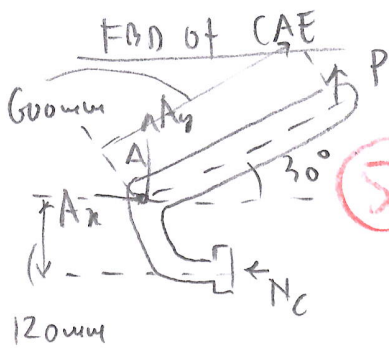 FBD of CAE
P
600mm
Ay
A
30°
5
Ax
Nc
120mm